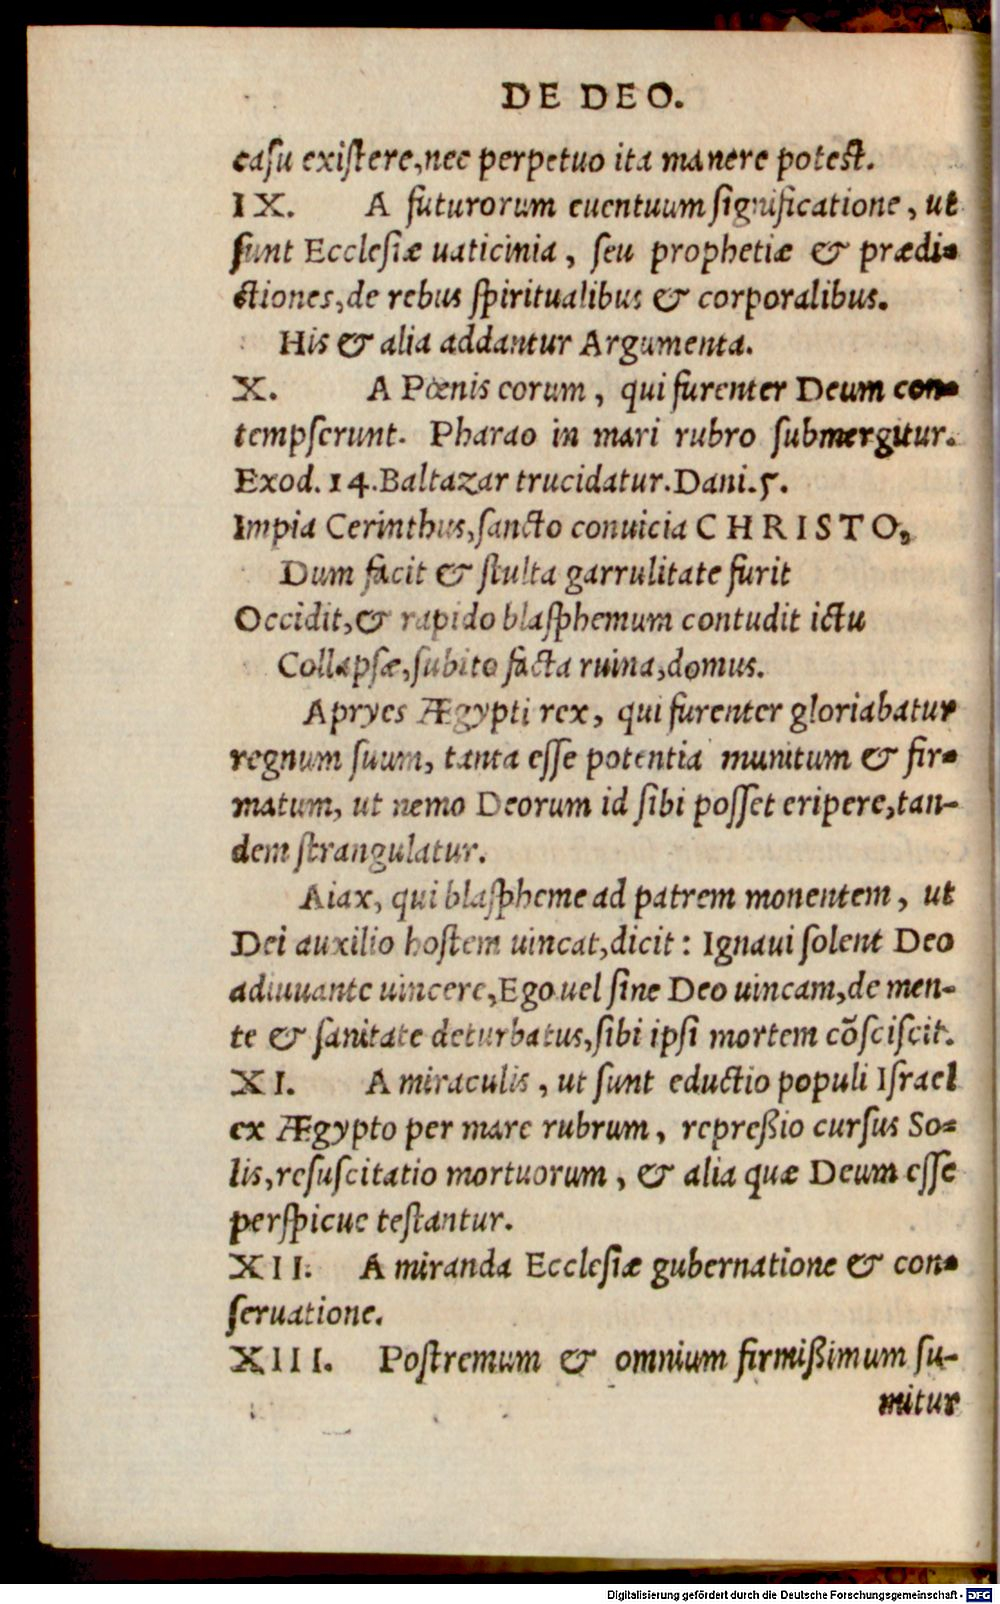 DE DEO.
casu existere, nec perpetuo ita manere potest.
IX. A futurorum euentuum significatione, ut
sunt Ecclesiæ uaticinia, seu prophetiæ & prædi-
ctiones, de rebus spiritualibus & corporalibus.
His & alia addantur Argumenta.
X. A Pœnis eorum, qui furenter Deum con-
tempserunt. Pharao in mari rubro submergitur.
Exod. 14. Baltazar trucidatur. Dani. 5.
Impia Cerinthus, sancto conuicia CHRISTO,
Dum facit & stulta garrulitate furit
Occidit, & rapido blasphemum contudit ictu
Collapsæ, subito facta ruina, domus.
Apryes Ægypti rex, qui furenter gloriabatur
regnum suum, tanta esse potentia munitum & fir-
matum, ut nemo Deorum id sibi posset eripere, tan-
dem strangulatur.
Aiax, qui blaspheme ad patrem monentem, ut
Dei auxilio hostem uincat, dicit: Ignaui solent Deo
adiuuante uincere, Ego uel sine Deo uincam, de men-
te & sanitate deturbatus, sibi ipsi mortem cõsciscit.
XI. A miraculis, ut sunt eductio populi Israel
ex Ægypto per mare rubrum, repreßio cursus So-
lis, resuscitatio mortuorum, & alia quæ Deum esse
perspicue testantur.
XII. A miranda Ecclesiæ gubernatione & con-
seruatione.
XIII. Postremum & omnium firmißimum su-
mitur
Digitalisierung gefördert durch die Deutsche Forschungsgemeinschaft - DFG